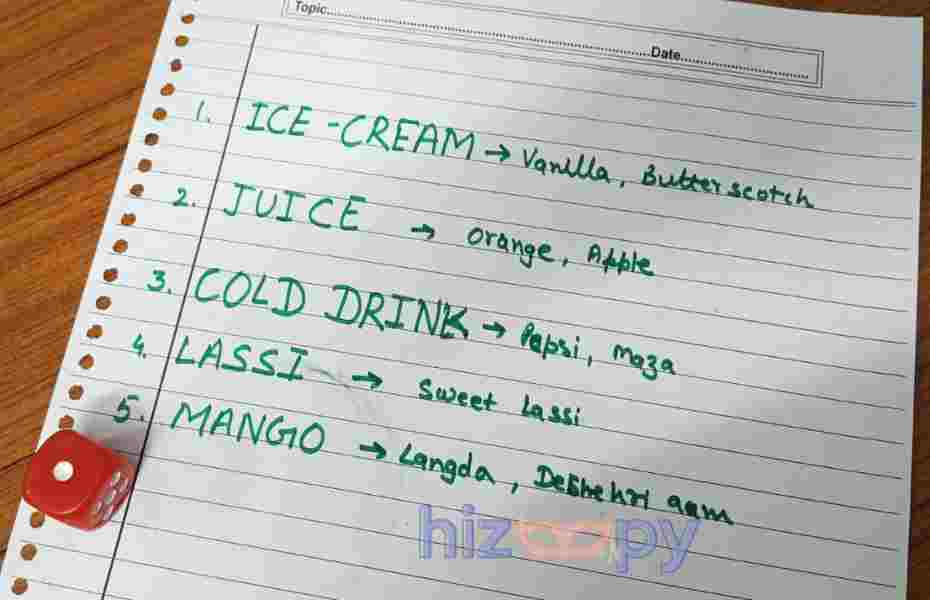 Topic.......... Date..........
1. ICE-CREAM → Vanilla, Butterscotch
2. JUICE → Orange, Apple
3. COLD DRINK → Pepsi, Maza
4. LASSI → Sweet Lassi
5. MANGO → Langda, Deshehri aam
hizoopy